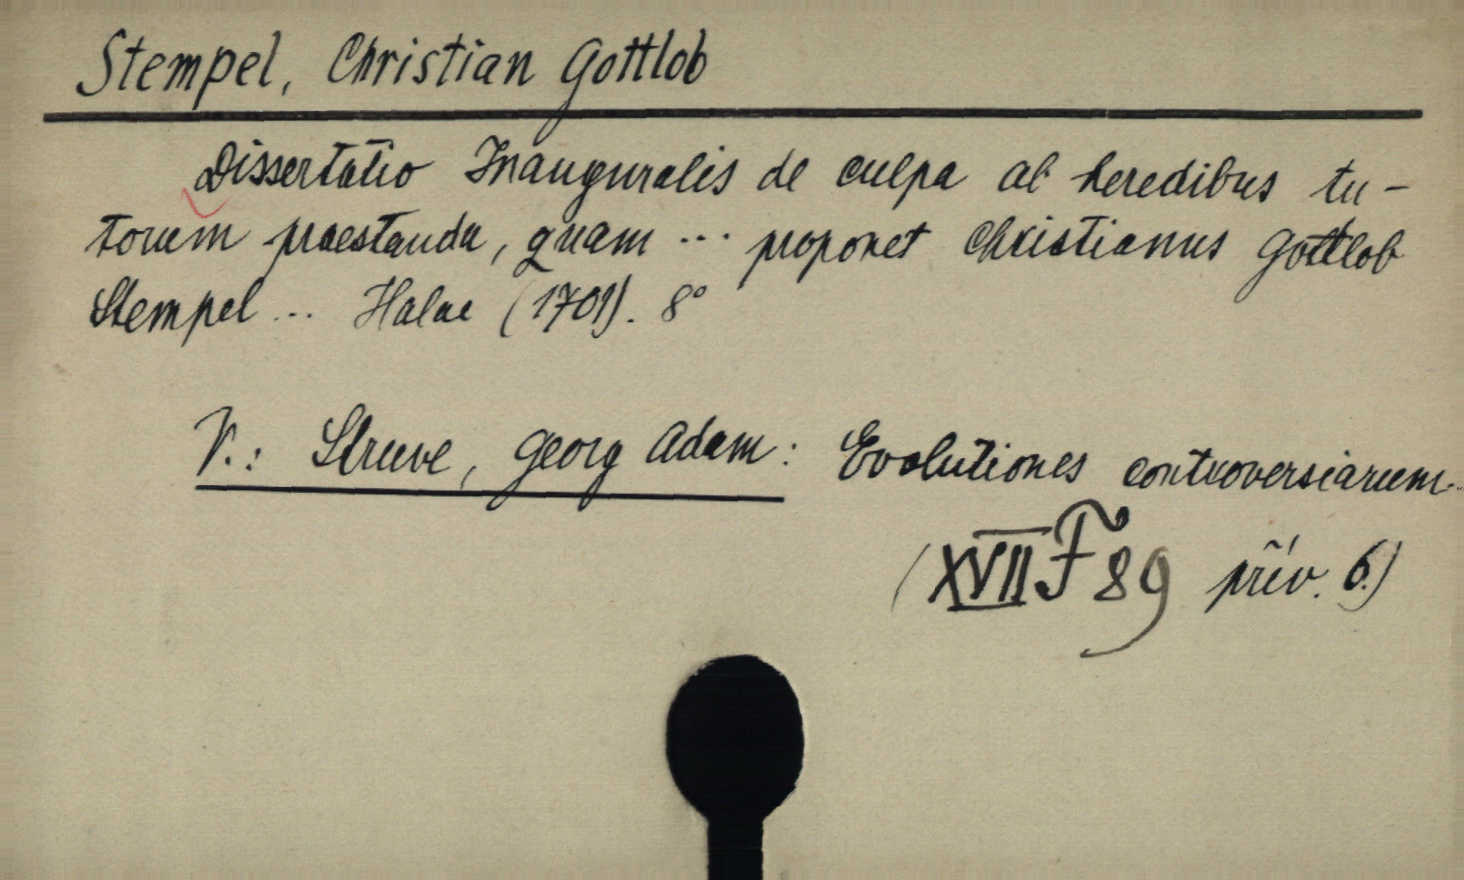 Stempel, Christian Gottlob
Dissertatio Inauguralis de culpa ab heredibus tu-
torum praestanda, quam ... proponet Christianus Gottlob
Stempel ... Halae (1701). 8°
V.: Struve, Georg Adam: Evolutiones controversiarum..
(XVII F 89 přív. 6.)